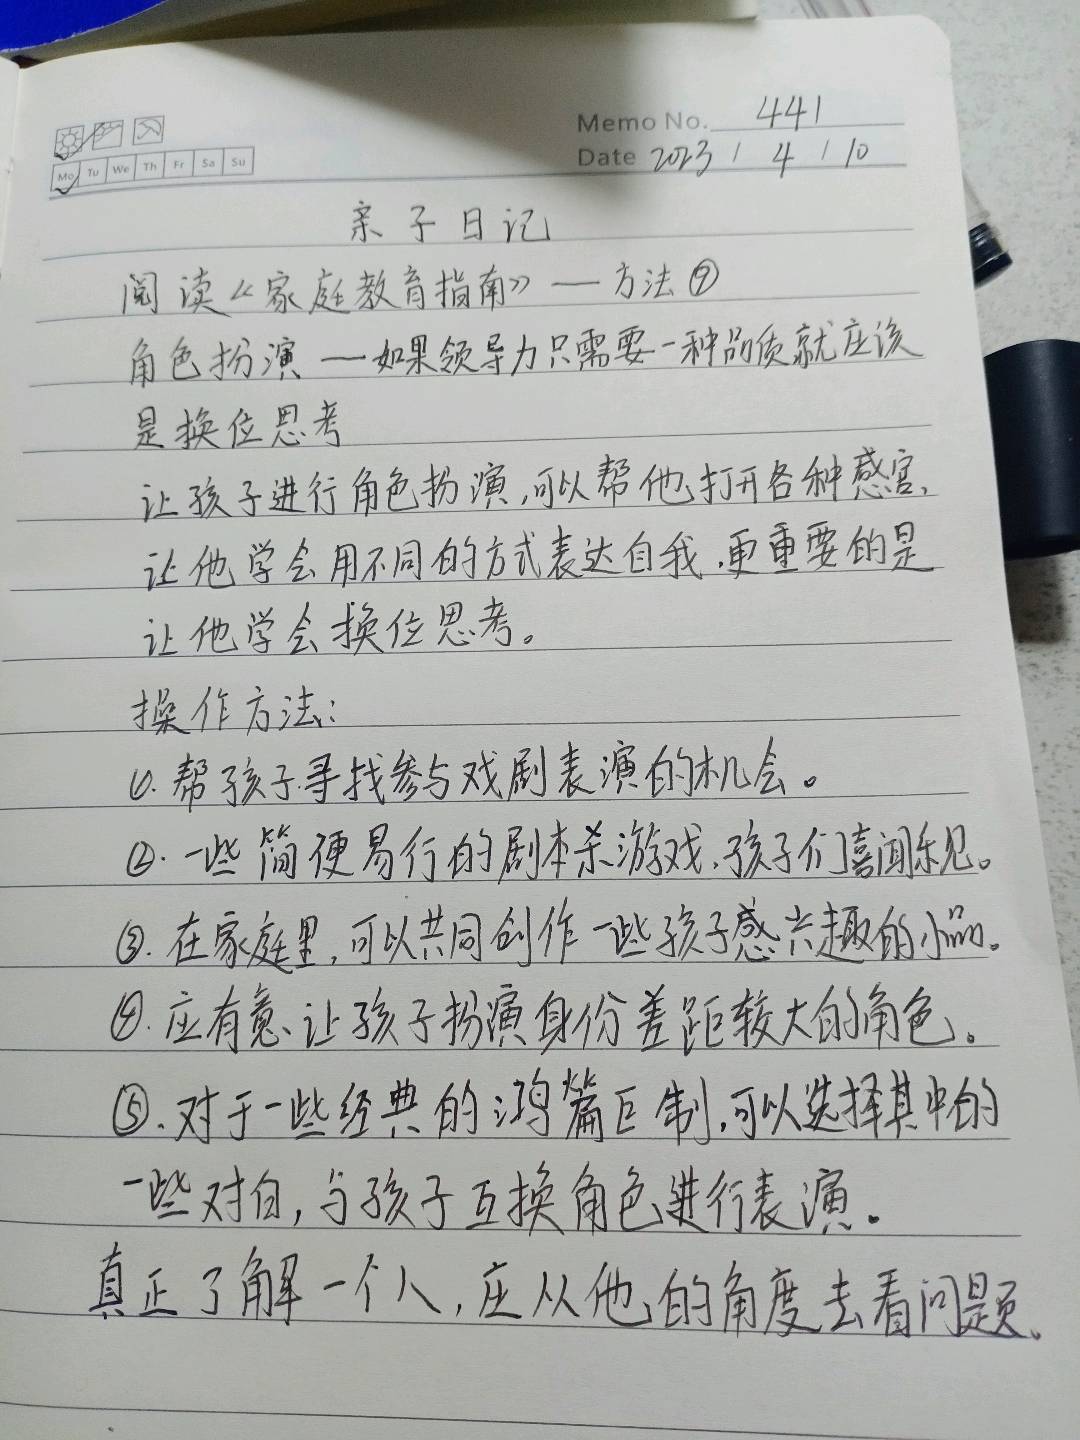 Memo No. 441
Mo Tu We Th Fr Sa Su
Date 2023 / 4 / 10
亲子日记
阅读《家庭教育指南》——方法⑨
角色扮演——如果领导力只需要一种品质就应该
是换位思考
让孩子进行角色扮演,可以帮他打开各种感官,
让他学会用不同的方式表达自我,更重要的是
让他学会换位思考。
操作方法:
①.帮孩子寻找参与戏剧表演的机会。
②.一些简便易行的剧本杀游戏,孩子们喜闻乐见。
③.在家庭里,可以共同创作一些孩子感兴趣的小品。
④.应有意、让孩子扮演身份差距较大的角色。
⑤.对于一些经典的鸿篇巨制,可以选择其中的
一些对白,与孩子互换角色进行表演。
真正了解一个人,应从他的角度去看问题。